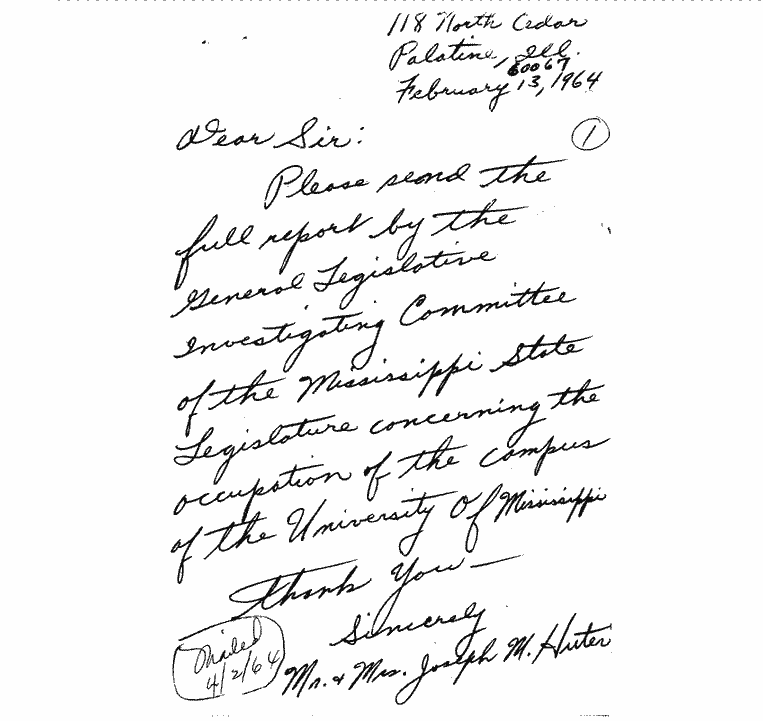 118 North Cedar
Palatine, Ill.
60067
February 13, 1964
Dear Sir:
1
Please send the
full report by the
General Legislative
Investigating Committee
of the Mississippi State
Legislature concerning the
occupation of the campus
of the University of Mississippi
Thank You —
Sincerely
Mr. & Mrs. Joseph M. Huter
Mailed
4/2/64